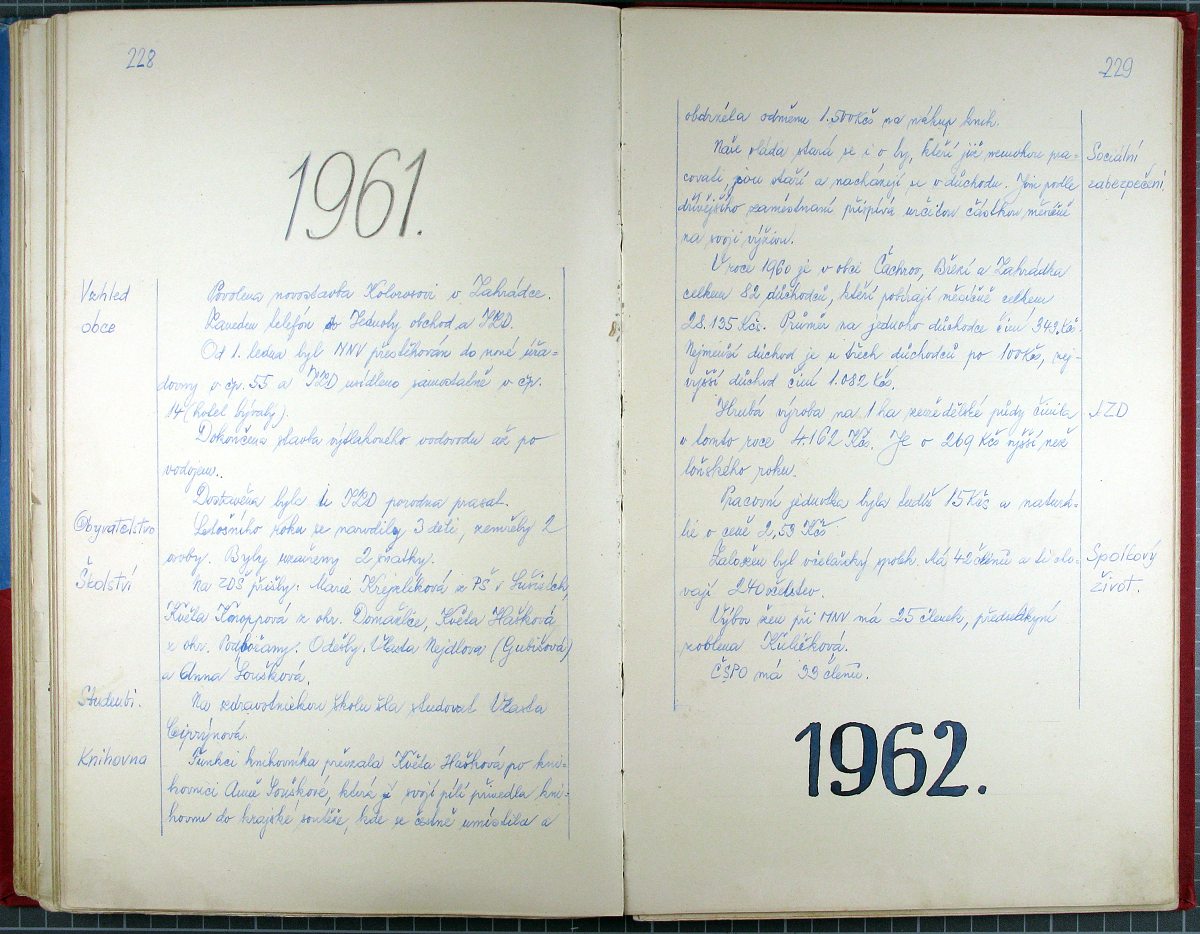 228
1961.
Vzhled
obce
Povolena novostavba Kolorosovi v Zahrádce.
Zaveden telefon do Jednoty obchod a JZD.
Od 1. ledna byl MNV přestěhován do nové úřa-
dovny v čp. 55 a JZD usídleno samostatně v čp.
14 (hotel bývalý).
Dokončena stavba výtlakového vodovodu až po
vodojem.
Dostavěna byla u JZD porodna prasat.
Obyvatelstvo
Letošního roku se narodily 3 děti, zemřely 2
osoby. Byly uzavřeny 2 sňatky.
Školství
Na ZDŠ přišly: Marie Krejzlíková z PŠ v Sušicích,
Květa z okr. Domažlice, Květa Hašková
z okr. Podbořany. Odešly: Vlasta Nejdlova (Gubišová)
a Anna Soušková.
Studenti.
Na zdravotnickou školu šla studovat Vlasta
Ciprýnová.
Knihovna
Funkci knihovníka převzala Květa Hašková po kni-
hovnici Anně Souškové, která ji svojí pílí přivedla kni-
hovnu do krajské soutěže, kde se čestně umístila a
229
obdržela odměnu 1.500 Kčs na nákup knih.
Sociální
zabezpečení.
Naše vláda stará se i o ty, kteří již nemohou pra-
covati, jsou staří a nacházejí se v důchodu. Jim podle
dřívějšího zaměstnaní přispívá určitou částkou měsíčně
na svoji výživu.
V roce 1960 je v obci Čachrov, Březí a Zahrádka
celkem 82 důchodců, kteří pobírají měsíčně celkem
28.135 Kčs. Průměr na jednoho důchodce činí 343 Kčs.
Nejmenší důchod je u třech důchodců po 100 Kčs, nej-
vyšší důchod činí 1.082 Kčs.
JZD
Hrubá výroba na 1 ha zemědělské půdy činila
v tomto roce 4162 Kčs. Je o 269 Kčs vyšší než
loňského roku.
Pracovní jednotka byla tudíž 15 Kčs a naturá-
lie o ceně 2,53 Kčs
Spolkový
život.
Založen byl včelařský spolek. Má 42 členů a ti cho-
vají 240 včelstev.
Výbor žen při MNV má 25 členek, předsedkyní
zvolena Kuličková.
ČSPO má 33 členů.
1962.